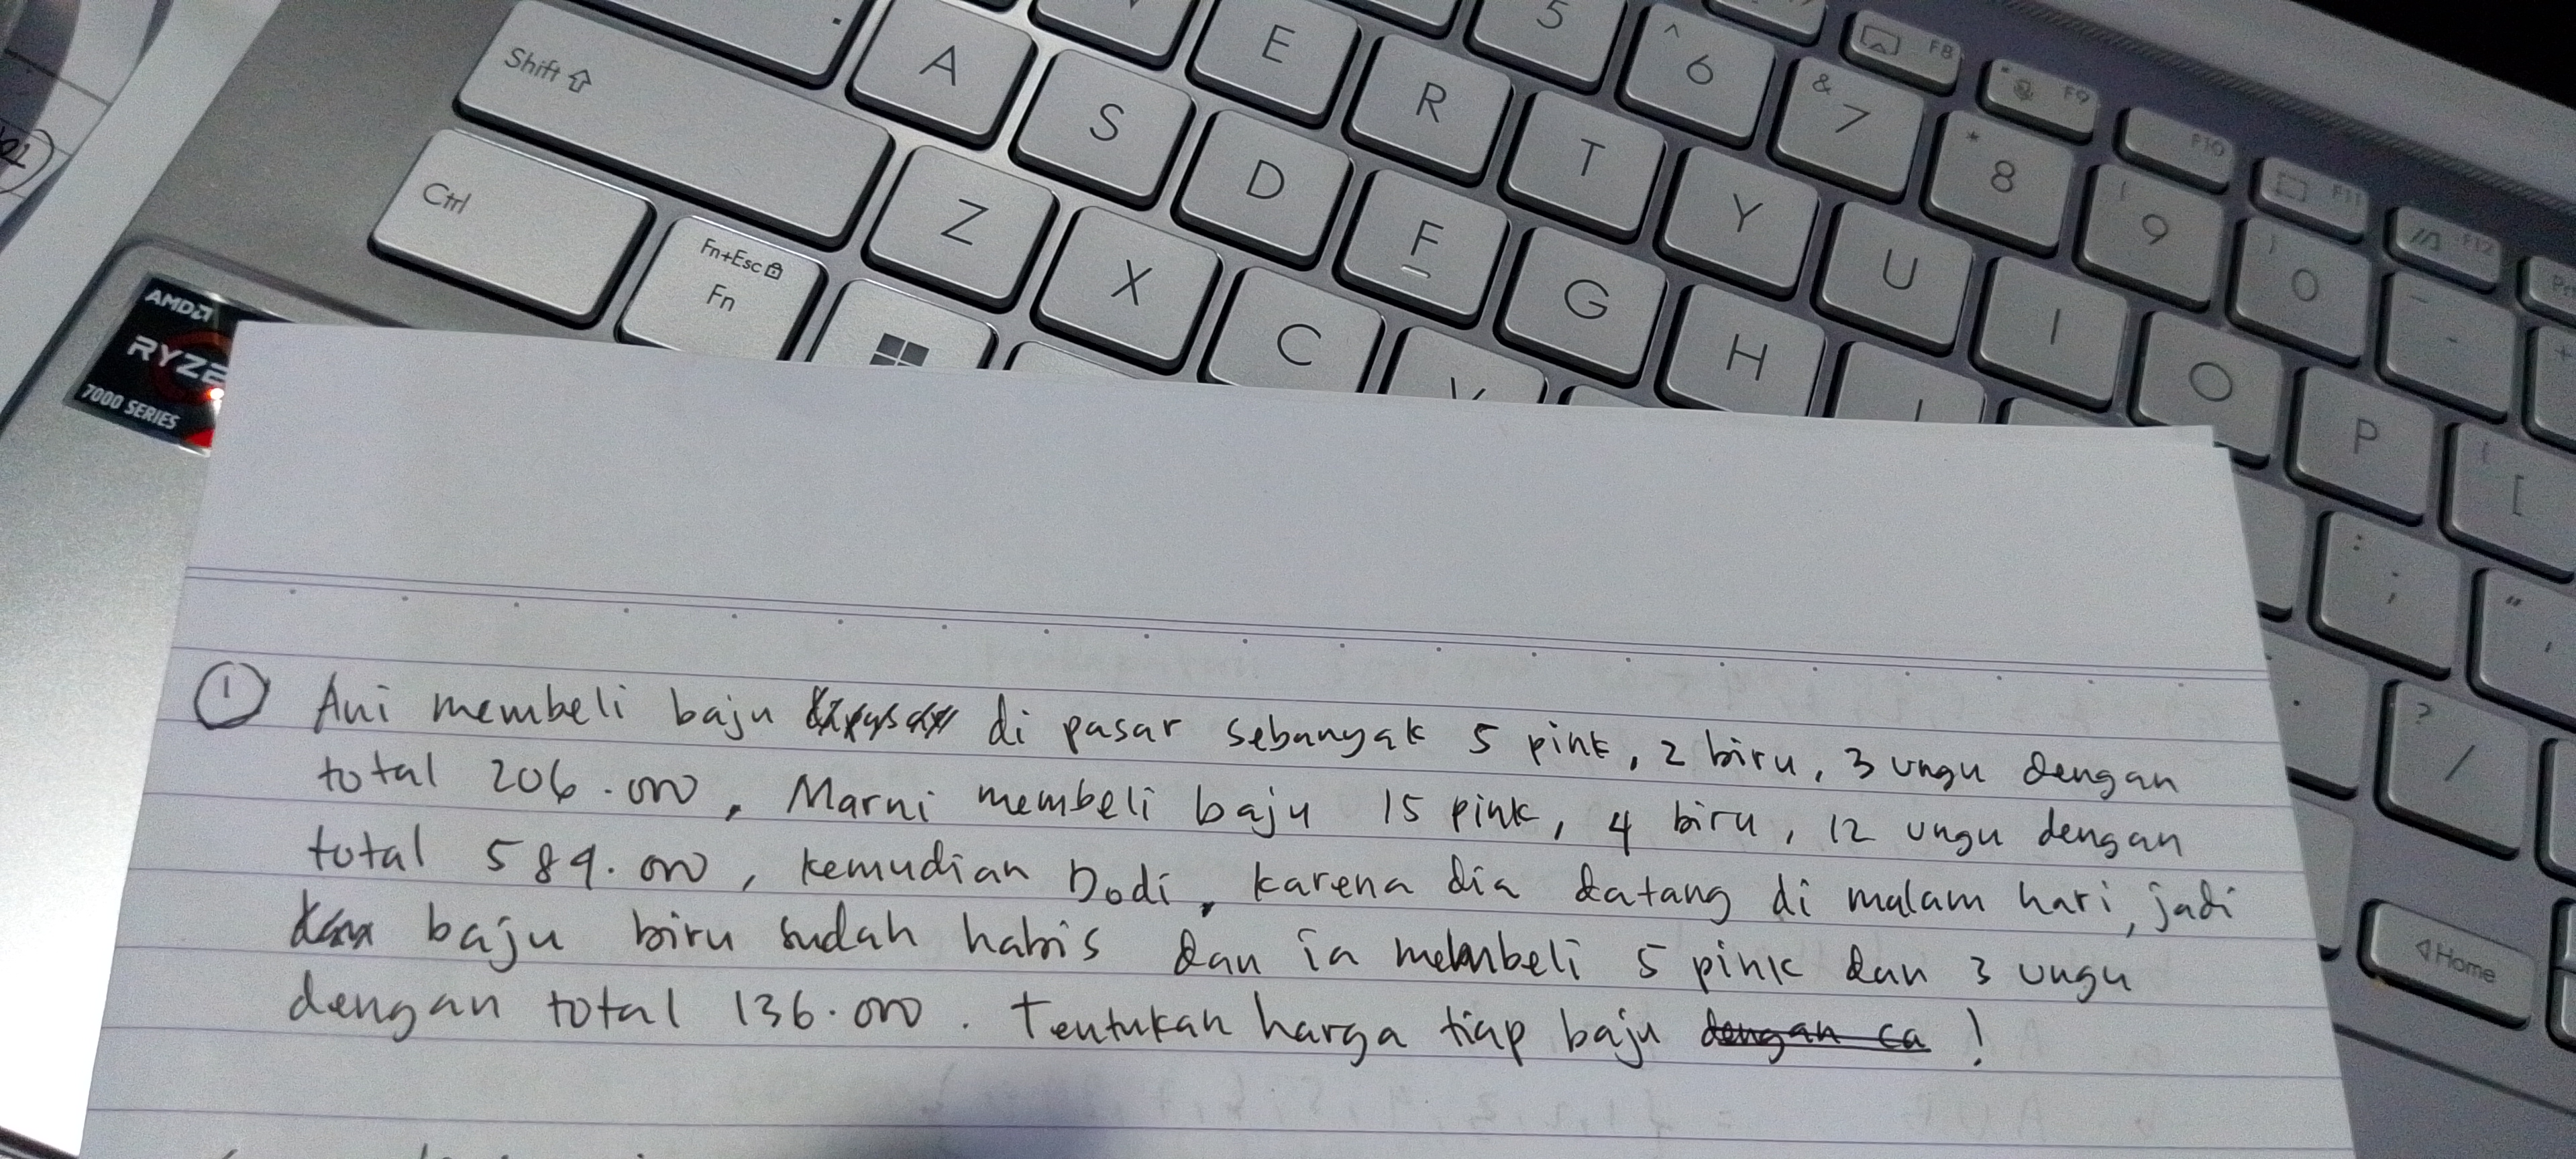 Shift
A
E
R
5
^ 6
& 7
F8
F9
F10
F11
F12
Ctrl
S
D
T
Y
* 8
( 9
) 0
Fn+Esc
Fn
Z
X
F
G
U
I
O
P
C
H
AMD
RYZE
7000 SERIES
Home
① Ani membeli baju di pasar sebanyak 5 pink, 2 biru, 3 ungu dengan
total 206.000, Marni membeli baju 15 pink, 4 biru, 12 ungu dengan
total 589.000, kemudian Dodi, karena dia datang di malam hari, jadi
baju biru sudah habis dan ia membeli 5 pink dan 3 ungu
dengan total 136.000. Tentukan harga tiap baju dengan ca !